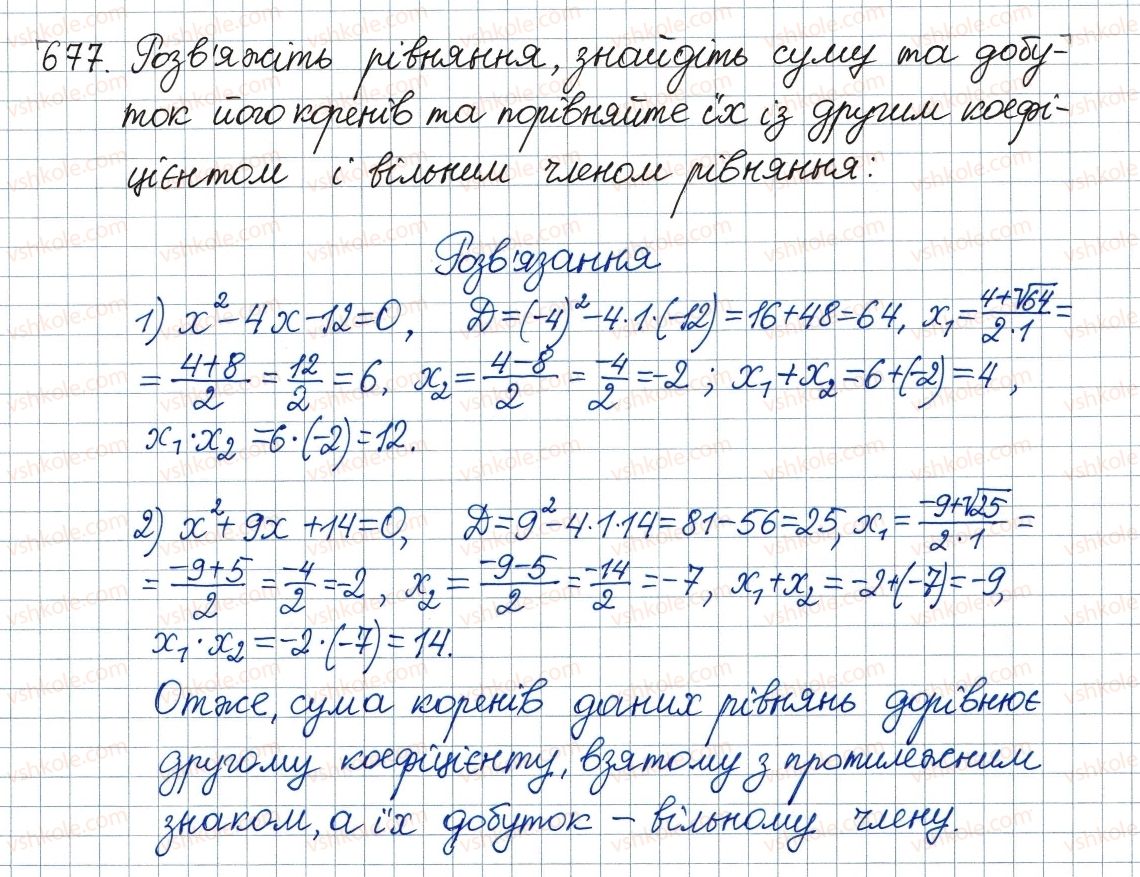 677. Розв'яжіть рівняння, знайдіть суму та добу-
ток його коренів та порівняйте їх із другим коефі-
цієнтом і вільним членом рівняння:
Розв'язання
1) x² - 4x - 12 = 0, D = (-4)² - 4·1·(-12) = 16 + 48 = 64, x₁ = (4+√64)/(2·1) =
= (4+8)/2 = 12/2 = 6, x₂ = (4-8)/2 = -4/2 = -2; x₁ + x₂ = 6 + (-2) = 4,
x₁·x₂ = 6·(-2) = 12.
2) x² + 9x + 14 = 0, D = 9² - 4·1·14 = 81 - 56 = 25, x₁ = (-9+√25)/(2·1) =
= (-9+5)/2 = -4/2 = -2, x₂ = (-9-5)/2 = -14/2 = -7, x₁ + x₂ = -2 + (-7) = -9,
x₁·x₂ = -2·(-7) = 14.
Отже, сума коренів даних рівнянь дорівнює
другому коефіцієнту, взятому з протилежним
знаком, а їх добуток – вільному члену.